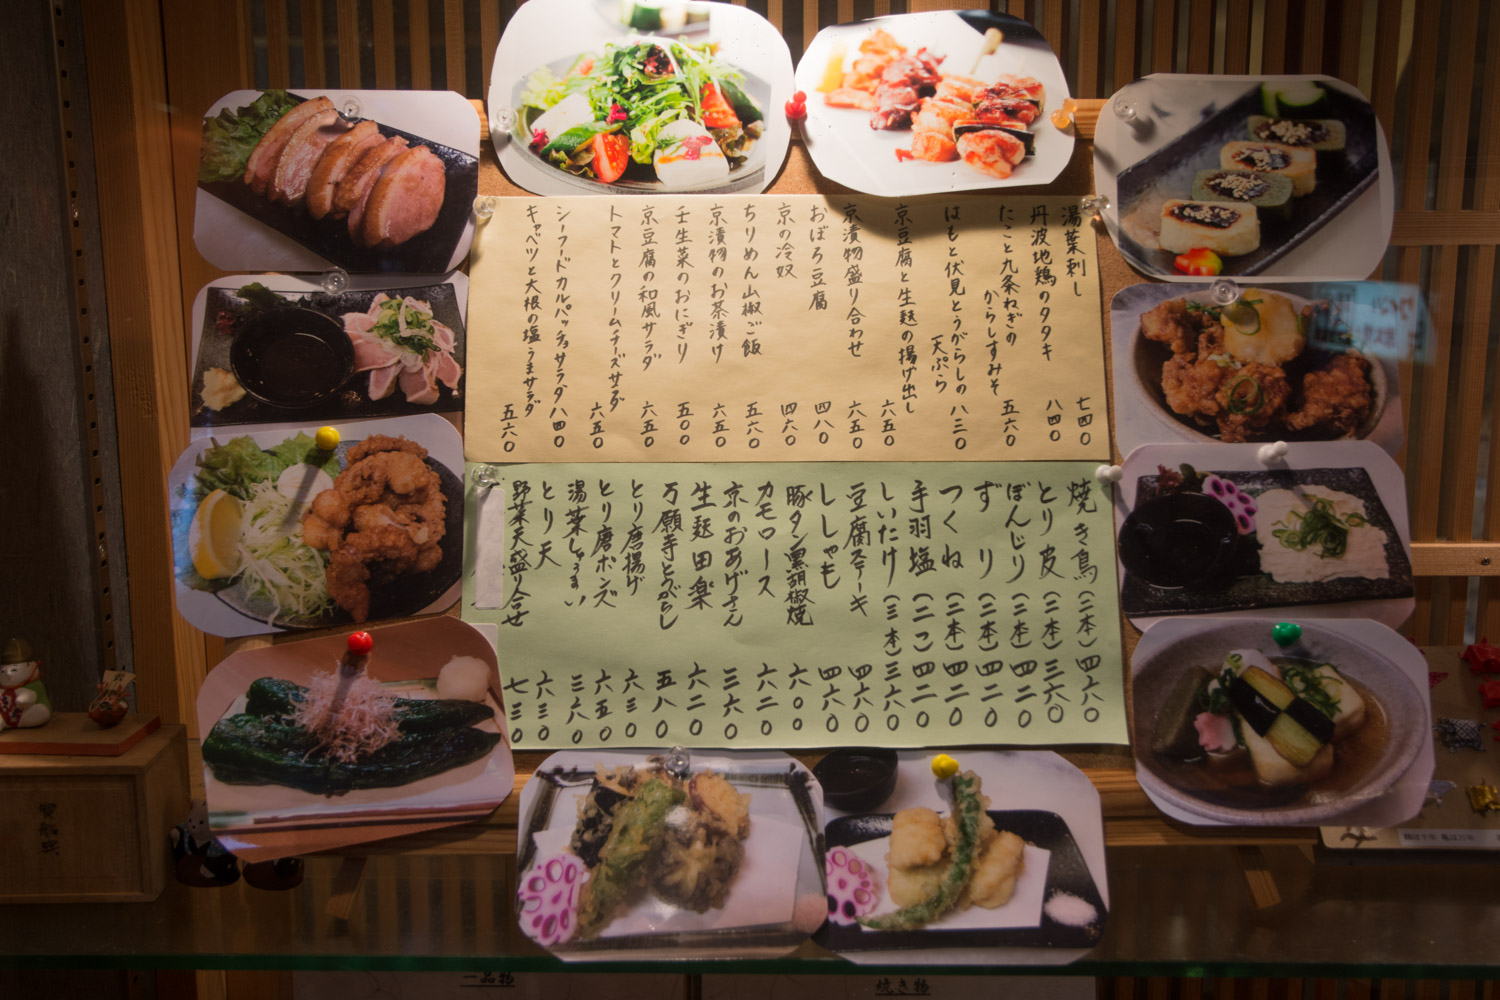 湯葉刺し 七四〇
丹波地鶏のタタキ 八四〇
たこと九条ねぎの
からしすみそ 五六〇
はもと伏見とうがらしの
天ぷら 八三〇
京豆腐と生麩の揚げ出し 六五〇
京漬物盛り合わせ 六五〇
おぼろ豆腐 四八〇
京の冷奴 四六〇
ちりめん山椒ご飯 五六〇
京漬物のお茶漬け 六五〇
壬生菜のおにぎり 五〇〇
京豆腐の和風サラダ 六五〇
トマトとクリームチーズサラダ 六五〇
シーフードカルパッチョサラダ 八四〇
キャベツと大根の塩うまサラダ 五六〇
焼き鳥(二本) 四六〇
とり皮(二本) 三六〇
ぼんじり(二本) 四二〇
ずり(二本) 四二〇
つくね(二本) 四二〇
手羽塩(二つ) 四二〇
しいたけ(三本) 三六〇
豆腐ステーキ 四六〇
ししゃも 四六〇
豚タン黒胡椒焼 六〇〇
カモロース 六二〇
京のおあげさん 三六〇
生麩田楽 六二〇
万願寺とうがらし 五八〇
とり唐揚げ 六三〇
とり唐ポンズ 六五〇
湯葉しゅうまい 三六〇
とり天 六三〇
野菜天盛り合せ 七三〇
一品物
焼き物